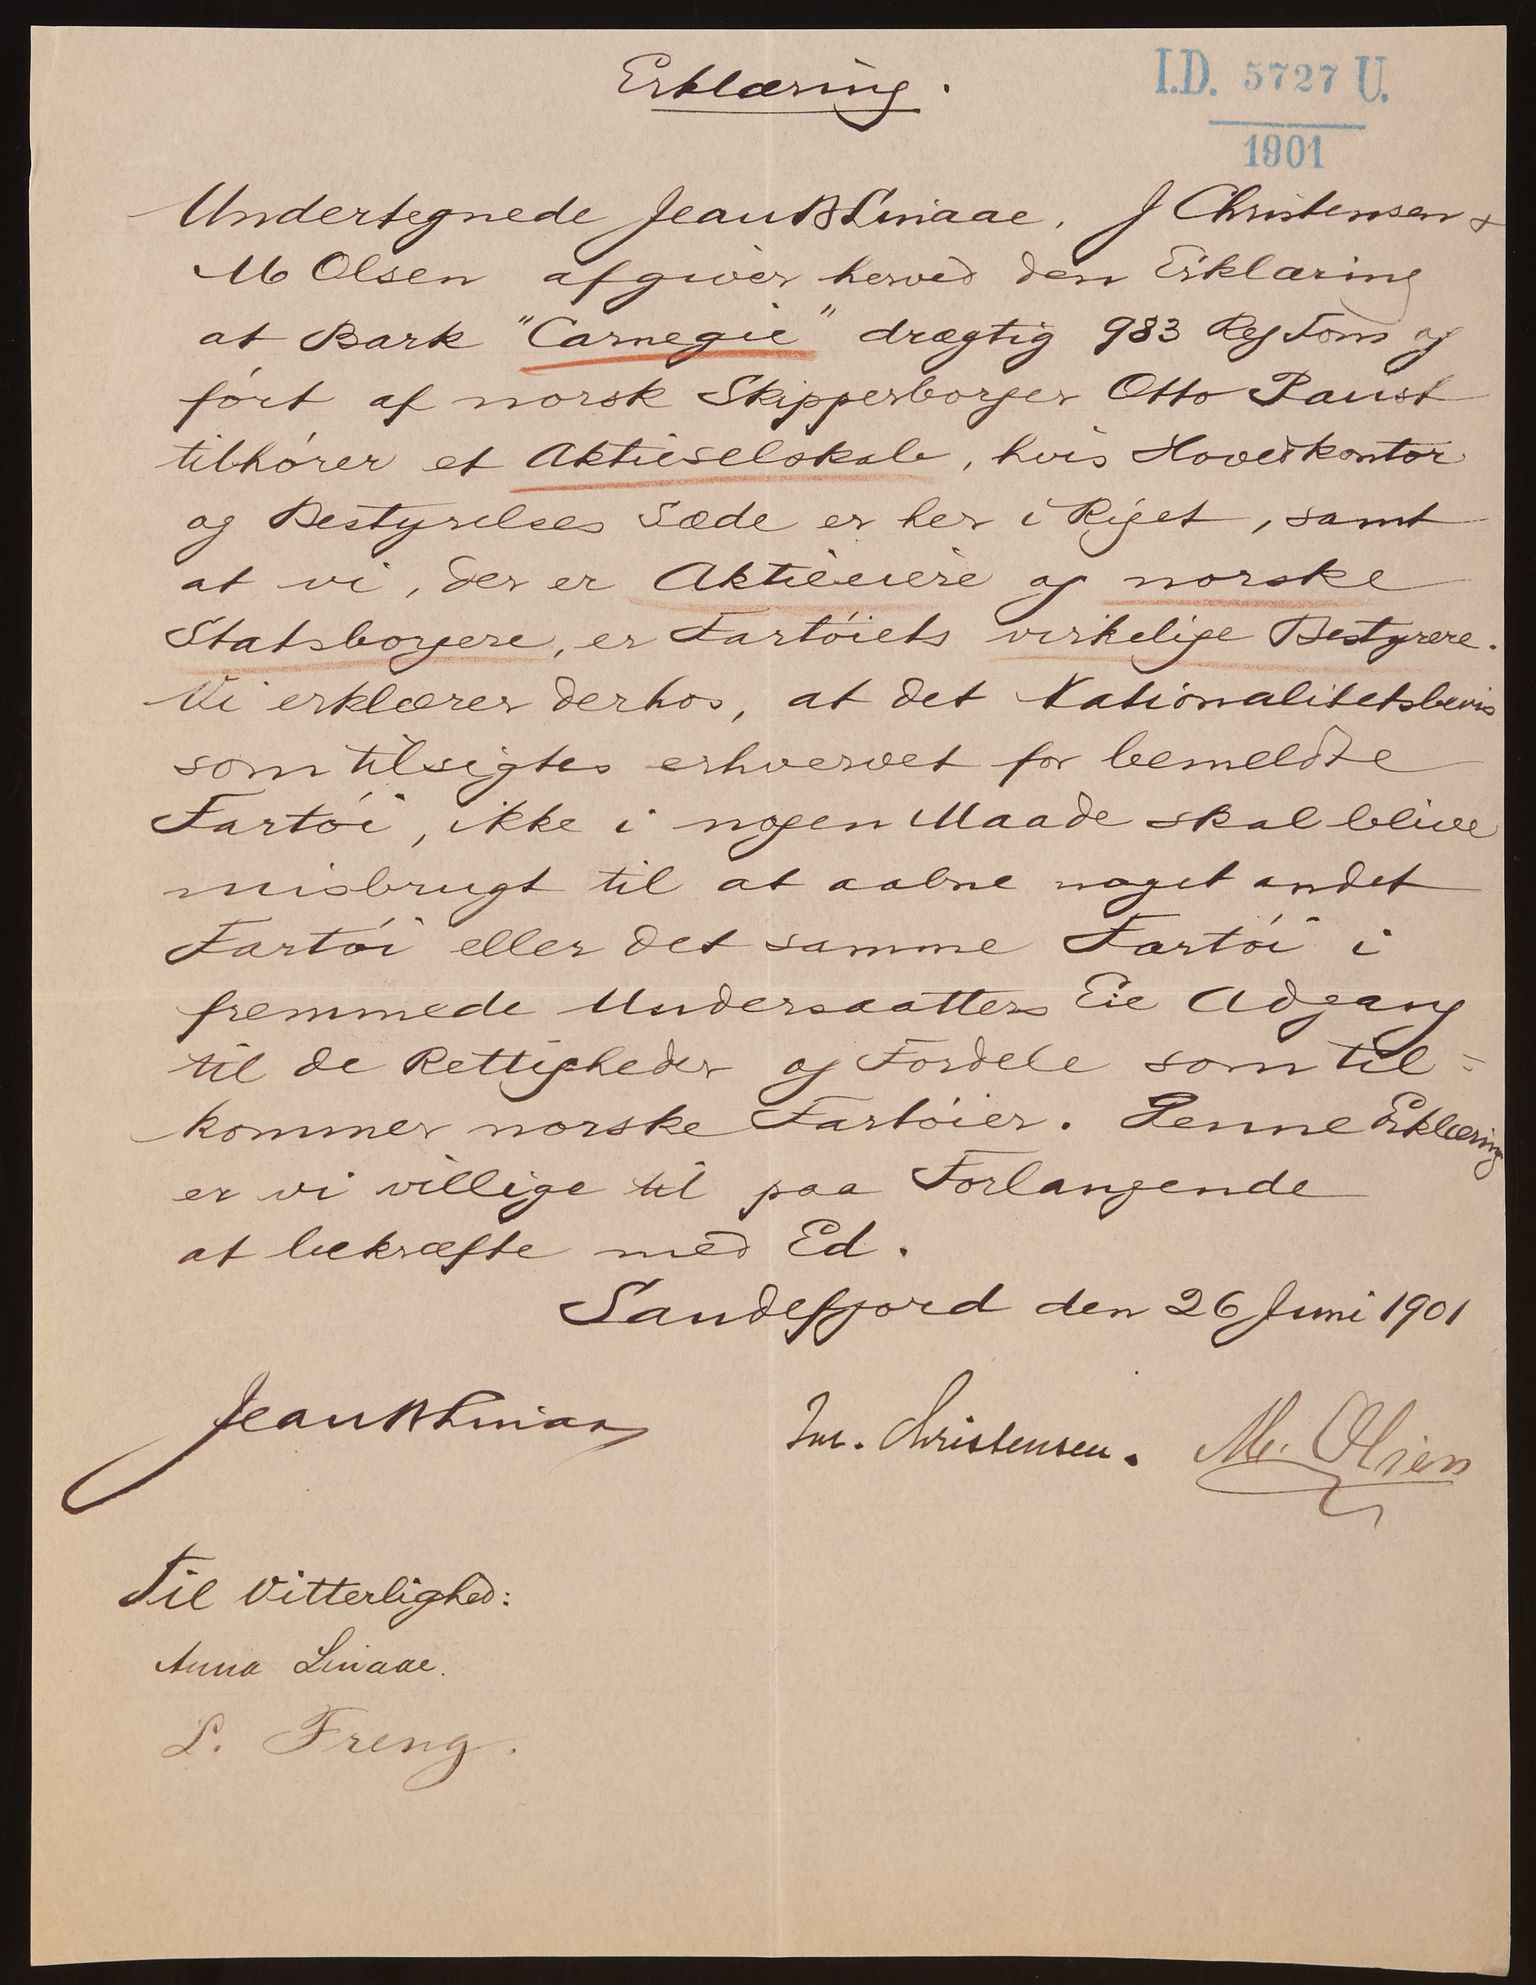 Erklæring.
I.D. 5727 U.
1901
Undertegnede Jean B Linaae, J Christensen &
M Olsen afgiver herved den Erklæring
at Bark "Carnegie" drægtig 983 Reg Tons og
ført af norsk Skipperborger Otto Paust
tilhører et Aktieselskab, hvis Hovedkontor
og Bestyrelses Sæde er her i Riget, samt
at vi, der er Aktieeiere og norske
Statsborgere, er Fartøiets virkelige Bestyrere.
Vi erklærer derhos, at det Nationalitetsbevis
som tilsigtes erhvervet for bemeldte
Fartøi, ikke i nogen Maade skal blive
misbrugt til at aabne noget andet
Fartøi eller det samme Fartøi i
fremmede Undersaatters Eie Adgang
til de Rettigheder og Fordele som til=
kommer norske Fartøier. Denne Erklæring
er vi villige til paa Forlangende
at bekræfte med Ed.
Sandefjord den 26 Juni 1901
Jean B Linaae
Christensen. M. Olsen
Til Vitterlighed:
Anna Linaae.
L. Freng.